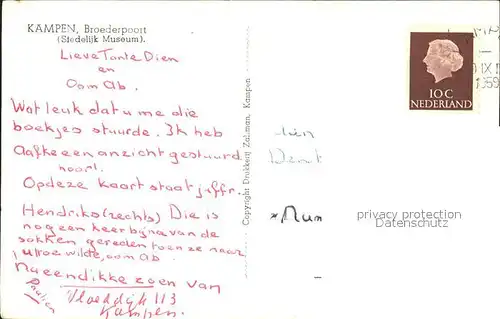 KAMPEN, Broederpoort
(Stedelijk Museum).
Lieve Tante Dien
en
Oom Ab.
Wat leuk dat u me die
boekjes stuurde. Ik heb
Aafke een anzicht gestuurd
hoor!
Op deze kaart staat jeffr.
Hendriks (rechts) Die is
nog een keer bijna van de
sokken gereden toen ze naar
u toe wilde, oom Ab.
Nu een dikke zoen van
Paulien
Vloeddijk 113
Kampen.
Copyright Drukkerij Zalsman, Kampen
10 C
NEDERLAND
IX
1959
privacy protection
Datenschutz